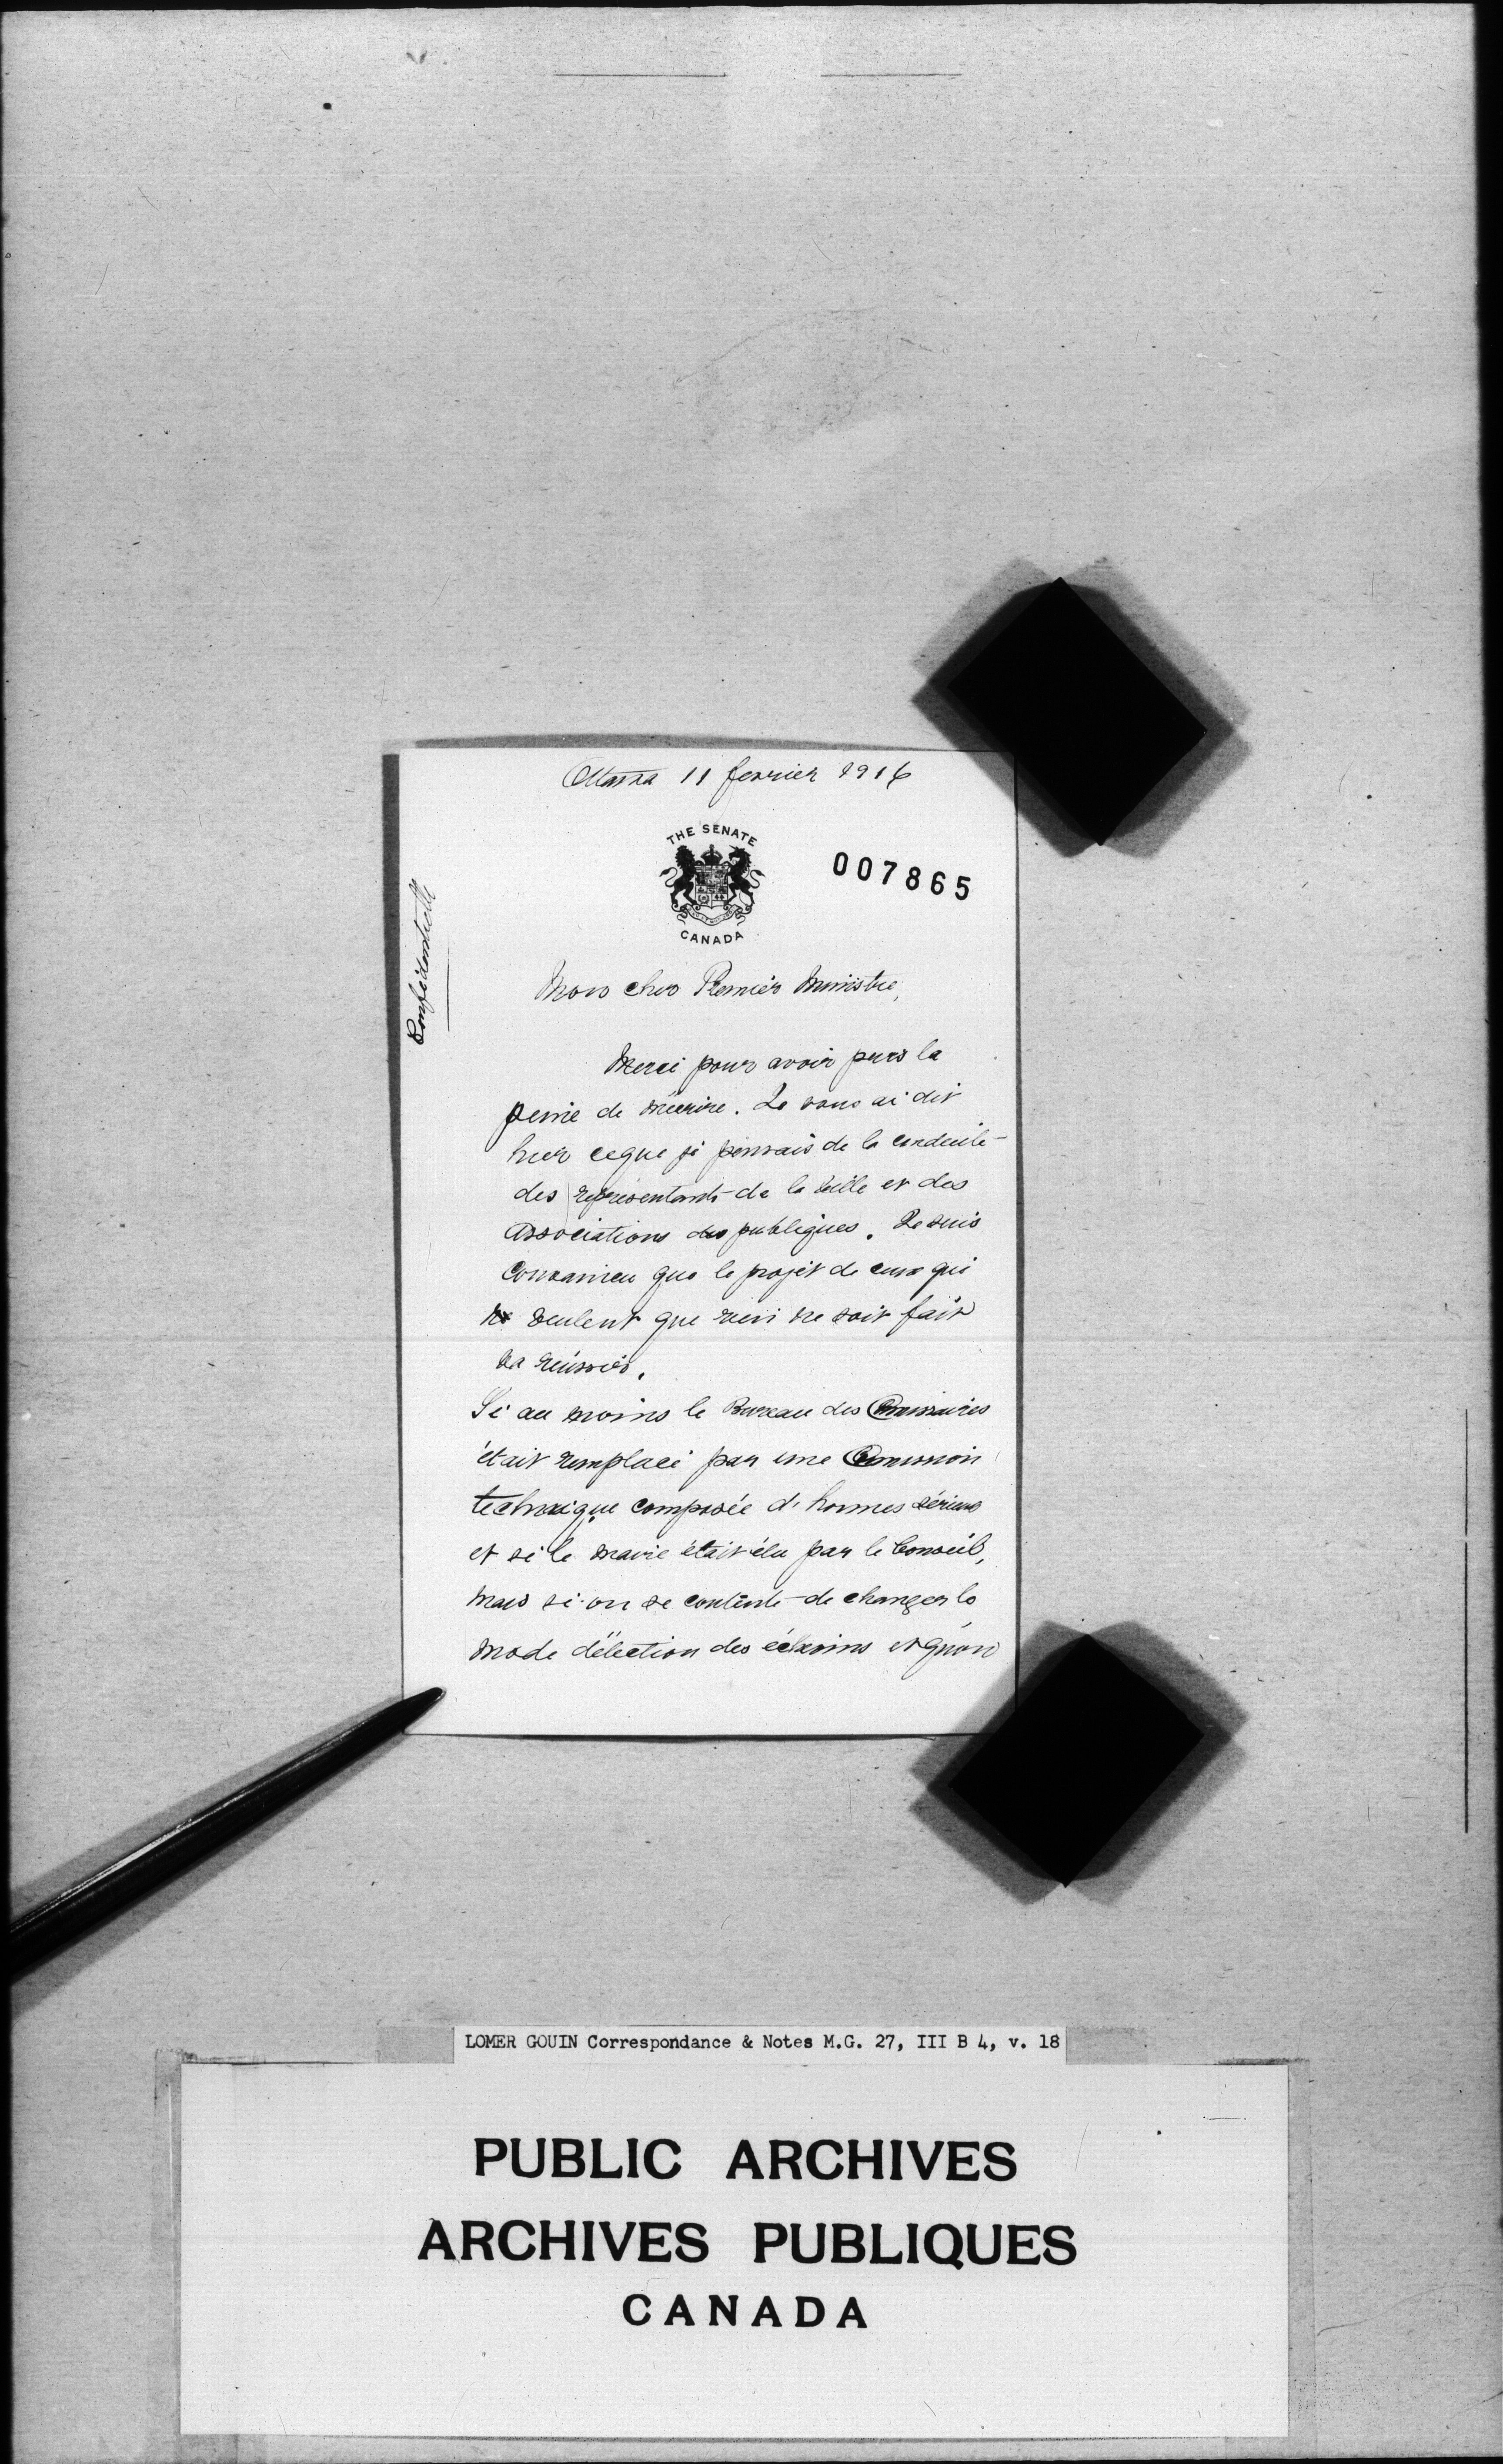 Ottawa 11 fevrier 1916
THE SENATE
CANADA
007865
Confidentielle
Mon cher Premier Ministre,
Merci pour avoir pris la
peine de m'écrire. Je vous ai dit
hier ce que je pensais de la conduite
des représentants de la ville et des
Associations publiques. Je suis
convaincu que le projet de ceux qui
veulent que rien ne soit fait
va réussir.
Si au moins le Bureau des Commissaires
était remplacé par une Commission
technique composée d'hommes sérieux
et si le maire était élu par le Conseil,
mais si on se contente de changer le
mode d'élection des échevins et qu'on
LOMER GOUIN Correspondance & Notes M.G. 27, III B 4, v. 18
PUBLIC ARCHIVES
ARCHIVES PUBLIQUES
CANADA